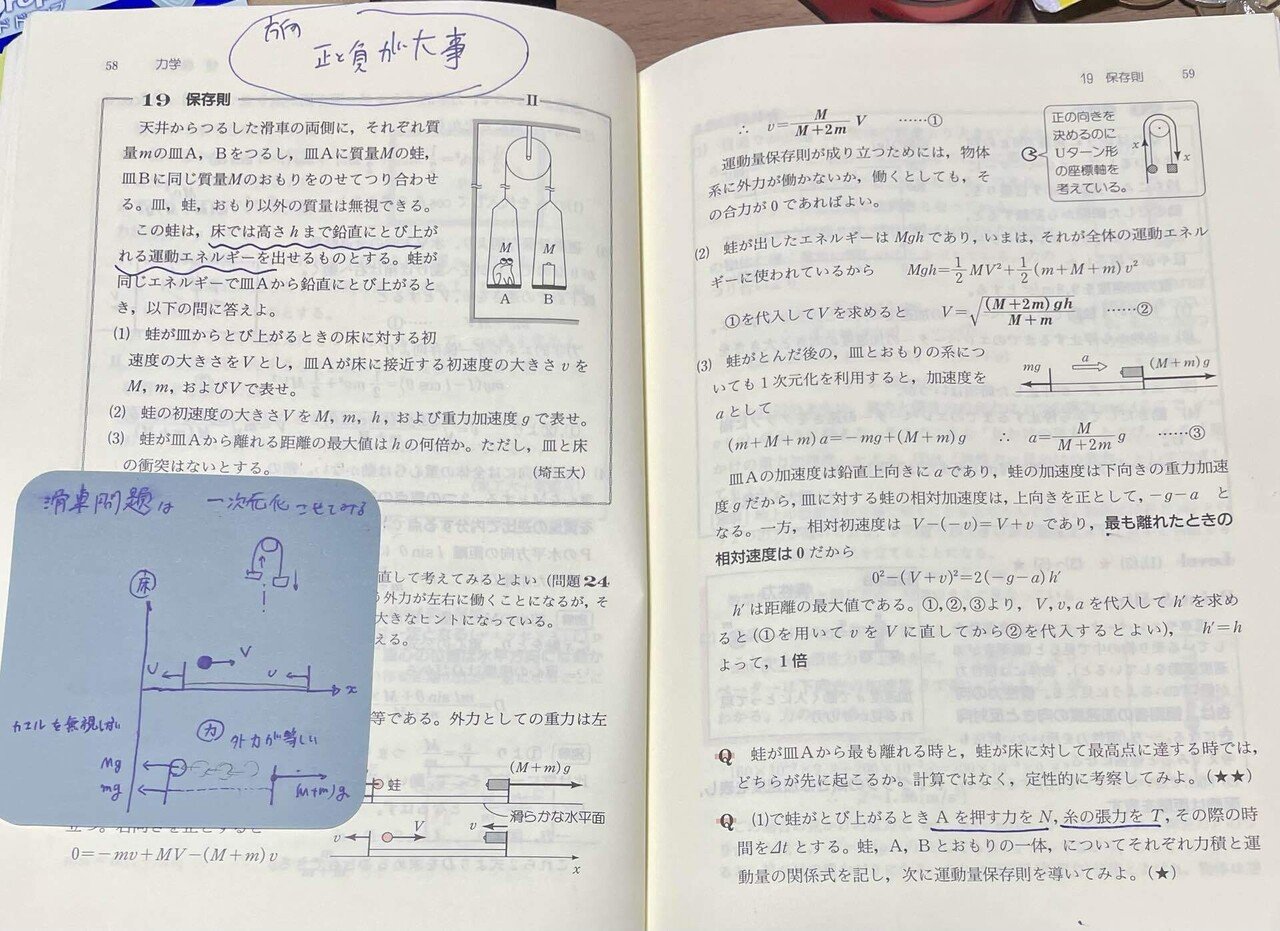 方の
正と負が大事
58 力学
19 保存則
II
天井からつるした滑車の両側に，それぞれ質
量mの皿A，Bをつるし，皿Aに質量Mの蛙，
皿Bに同じ質量Mのおもりをのせてつり合わせ
る。皿，蛙，おもり以外の質量は無視できる。
この蛙は，床では高さhまで鉛直にとび上が
れる運動エネルギーを出せるものとする。蛙が
同じエネルギーで皿Aから鉛直にとび上がると
き，以下の問に答えよ。
M M
A B
(1) 蛙が皿からとび上がるときの床に対する初
速度の大きさをVとし，皿Aが床に接近する初速度の大きさvを
M，m，およびVで表せ。
(2) 蛙の初速度の大きさVをM，m，h，および重力加速度gで表せ。
(3) 蛙が皿Aから離れる距離の最大値はhの何倍か。ただし，皿と床
の衝突はないとする。 (埼玉大)
滑車問題は 一次元化させてみる
床
v V v x
カエルを無視しない
力 外力が等しい
Mg
mg (M+m)g
直して考えてみるとよい (問題24
外力が左右に働くことになるが，そ
大きなヒントになっている。
える。
等である。外力としての重力は左
蛙 (M+m)g
滑らかな水平面
v V v
x
0=−mv+MV−(M+m)v
19 保存則 59
∴ v=M/(M+2m) V ……①
運動量保存則が成り立つためには，物体
系に外力が働かないか，働くとしても，そ
の合力が0であればよい。
正の向きを
決めるのに
Uターン形
の座標軸を
考えている。
x x
(2) 蛙が出したエネルギーはMghであり，いまは，それが全体の運動エネル
ギーに使われているから Mgh=1/2 MV²+1/2 (m+M+m)v²
①を代入してVを求めると V=√((M+2m)gh/(M+m)) ……②
(3) 蛙がとんだ後の，皿とおもりの系につ
いても1次元化を利用すると，加速度を
aとして
mg a (M+m)g
(m+M+m)a=−mg+(M+m)g ∴ a=M/(M+2m) g ……③
皿Aの加速度は鉛直上向きにaであり，蛙の加速度は下向きの重力加速
度gだから，皿に対する蛙の相対加速度は，上向きを正として，−g−a と
なる。一方，相対初速度は V−(−v)=V+v であり，最も離れたときの
相対速度は0だから
0²−(V+v)²=2(−g−a)h′
h′は距離の最大値である。①，②，③より，V，v，aを代入してh′を求め
ると (①を用いてvをVに直してから②を代入するとよい)， h′=h
よって，1倍
Q 蛙が皿Aから最も離れる時と，蛙が床に対して最高点に達する時では，
どちらが先に起こるか。計算ではなく，定性的に考察してみよ。(★★)
Q (1)で蛙がとび上がるときAを押す力をN，糸の張力をT，その際の時
間をΔtとする。蛙，A，Bとおもりの一体，についてそれぞれ力積と運
動量の関係式を記し，次に運動量保存則を導いてみよ。(★)